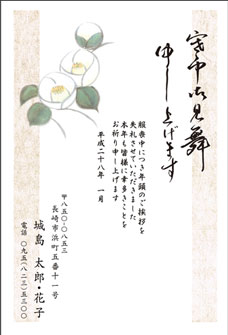 寒中お見舞
申し上げます
服喪中につき年頭のご挨拶を
失礼させていただきました
本年も皆様に幸多きことを
お祈り申し上げます
平成二十八年 一月
〒八五〇-〇八五三
長崎市浜町五番十一号
城島 太郎・花子
電話 〇九五(八二三)五三〇〇